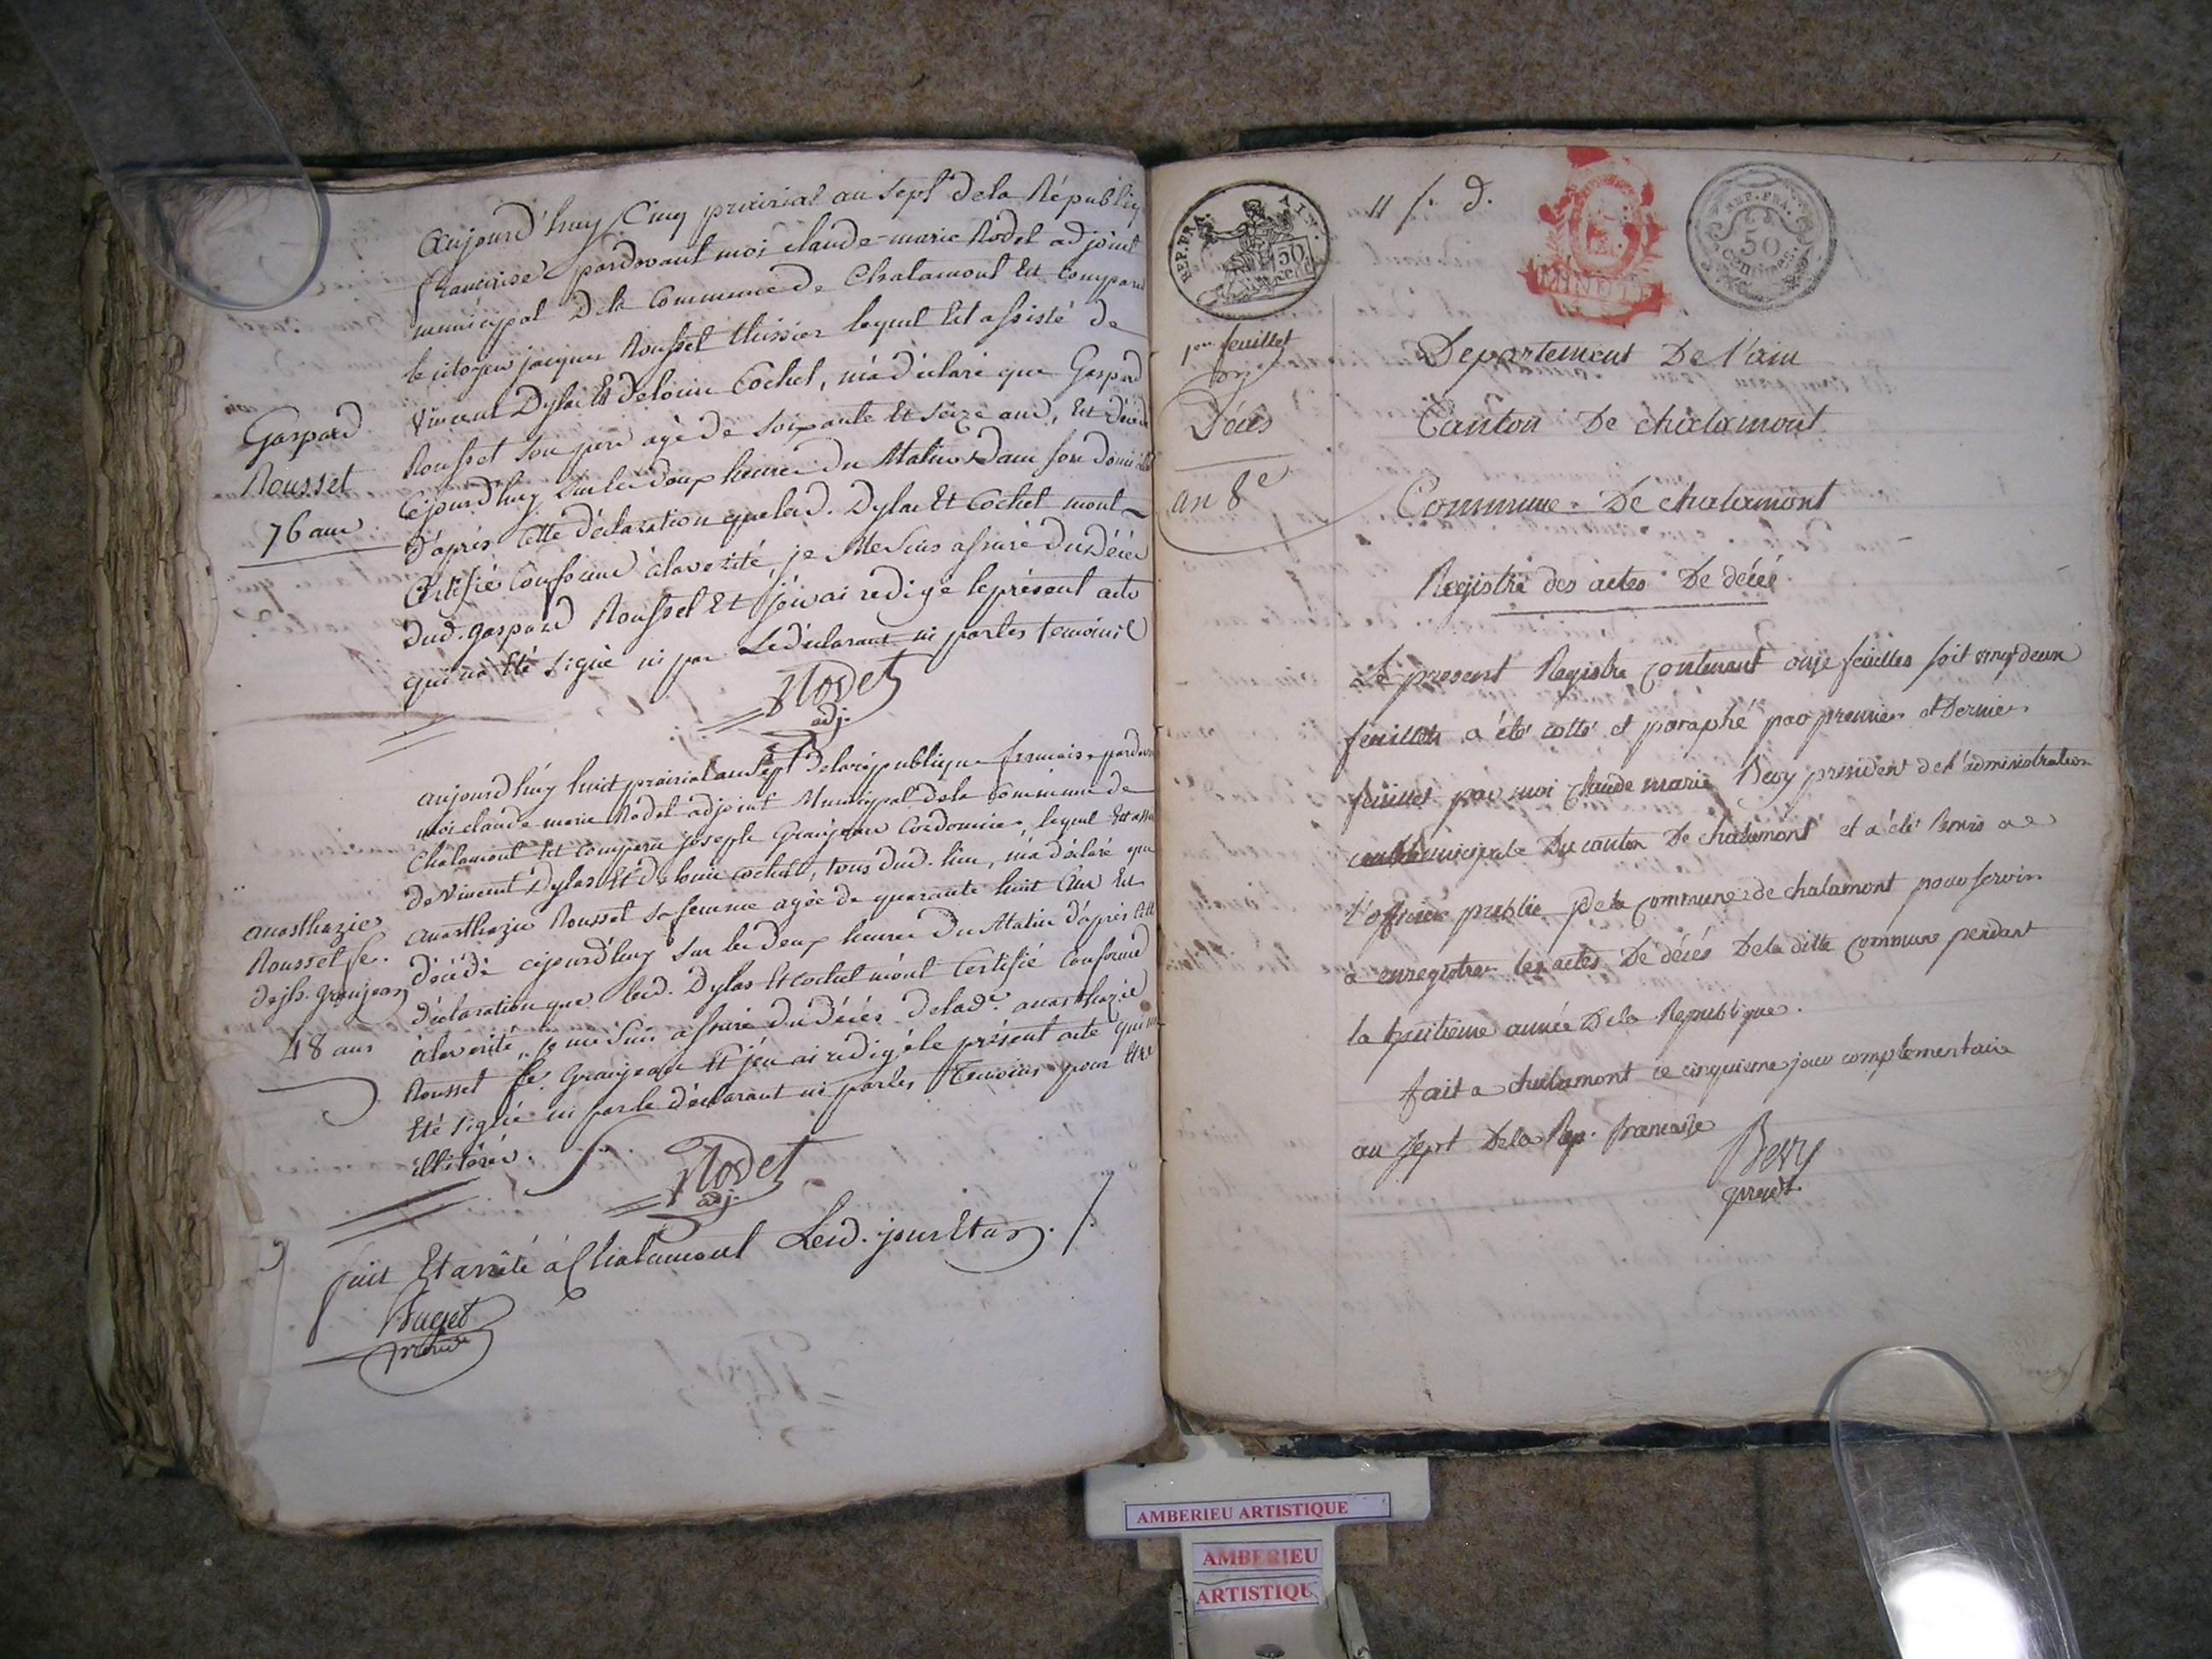 Aujourd'huy Cinq prairial an sept de la Républiq
francaise pardevant moi claude-marie Rodet adjoint
municipal De la Commune de Chalamont Est Comparu
le citoyen jacques Rousset thissier lequel Est assisté de
Vincent Dylas Et de louis Cochet, m'a déclaré que Gaspard
Rousset son pere agé de soixante Et seize ans, Est décédé
Cejourd'huy sur les deux heures du Matin Dans son domicille
D'après Cette déclaration que lesd. Dylas Et Cochet mont
Certifié Conforme àlaverité, je Me Suis assuré Du Décès
Dud. gaspard Rousset Et j'en ai redigé leprésent acte
qui n'a Eté signé ni par Ledéclarant ni parles temoins
Gaspard
Rousset
76 ans
Rodet
adj.
aujourd'huy huit prairial an sept delarépublique francaise pardevant
moi claude marie Rodet adjoint Municipal dela commune de
Chalamont Est Comparu joseph Granjean Cordonnier lequel Est assisté
de Vincent Dylas Et de louis cochet, tous dud. lieu, m'a déclaré que
anasthazie Rousset sa femme agée de quarante huit Ans Est
décédé cejourd'huy sur les deux heures du Matin d'après Cette
déclaration que lesd. Dylas Et cochet m'ont Certifié Conforme
àlaverité, je me Suis assuré du décès delad.e anasthazie
Rousset fe. Granjean Et j'en ai redigé le présent acte qui n'a
Eté signé ni par le déclarant ni parles Temoins pour Etre
illitérés.
anasthazie
Rousset fe.
dejh. granjean
48 ans
Rodet
adj.
fait Et arrêté à Chalamont Lesd. jour Et an.
11 f. d.
REP. FRA.
AIN.
50
MINUTE
REP. FRA.
50
centimes
1er feuillet
Décés
an 8e
Departement De l'ain
Canton De chalamont
Commune De chalamont
Registre des actes De décés
Le present Registre Contenant onze feuilles soit vingt deux
feuillets a été cotté et paraphé par premier et Dernier
feuillet par moi Claude marie Bevy président de l'administration
municipale Du canton De chalamont et a été Remis a
l'officier public de la Commune de chalamont pour servir
a enregistrer les actes De décés De la ditte Commune pendant
la huitieme année De la Republique.
fait a chalamont ce cinquieme jour complementaire
an sept De la Rep. francaise
Bevy
presdt
AMBERIEU ARTISTIQUE
AMBERIEU
ARTISTIQU